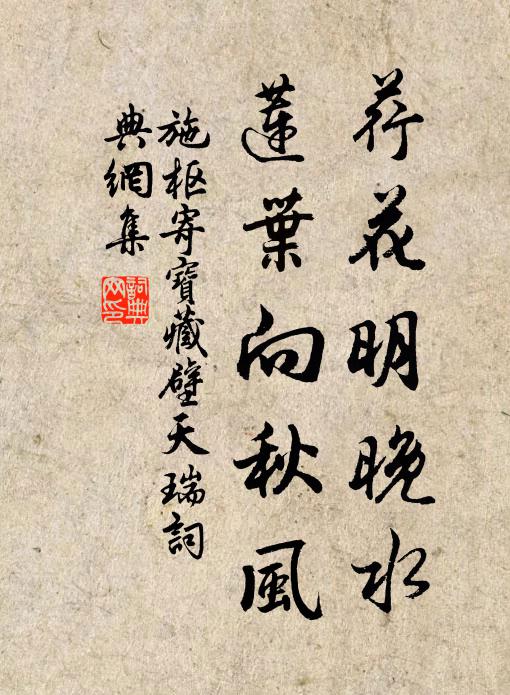 荷花明晚水
蓮葉向秋風
施枢寄寶藏壁天瑞詞
典網集
詞典
网印